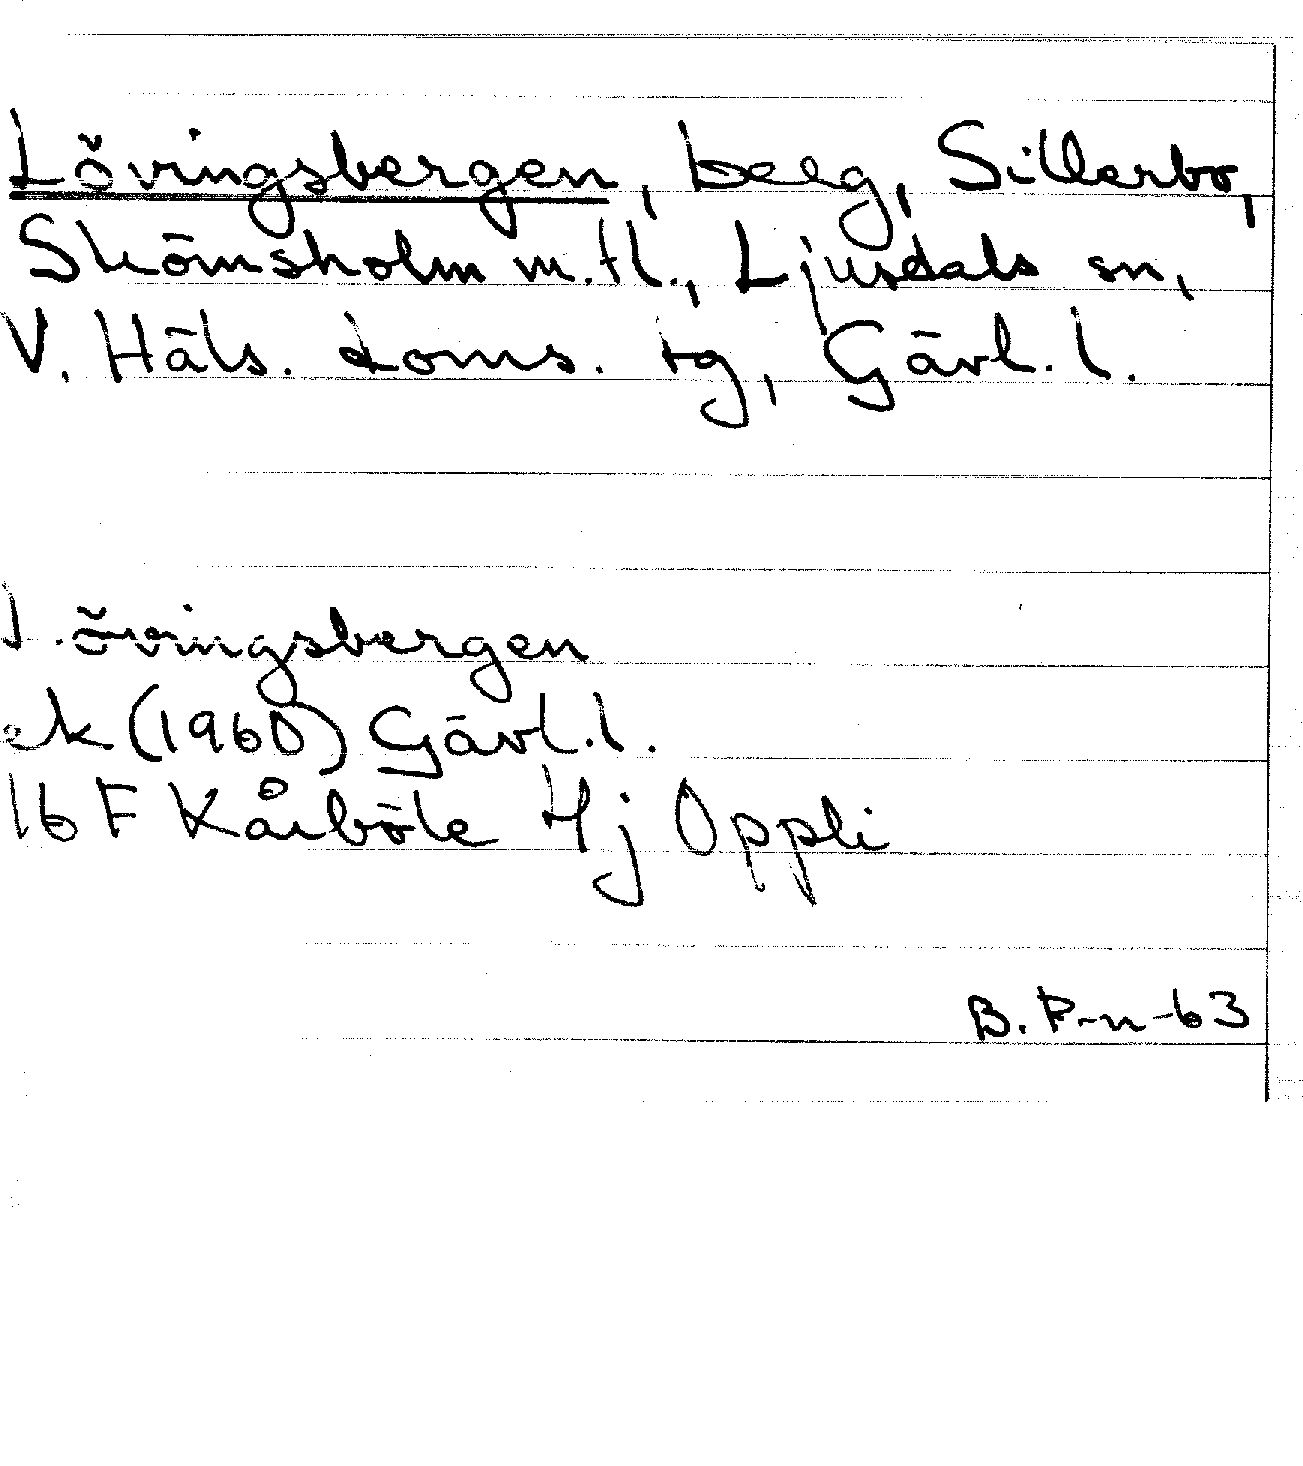 Lövingsbergen, berg, Sillerbo,
Skömsholm m.fl., Ljusdals sn,
V. Häls. doms. tg, Gävl. l.
Lövingsbergen
ek (1960) Gävl. l.
16 F Kårböle 4j Oppli
B. P-n -63